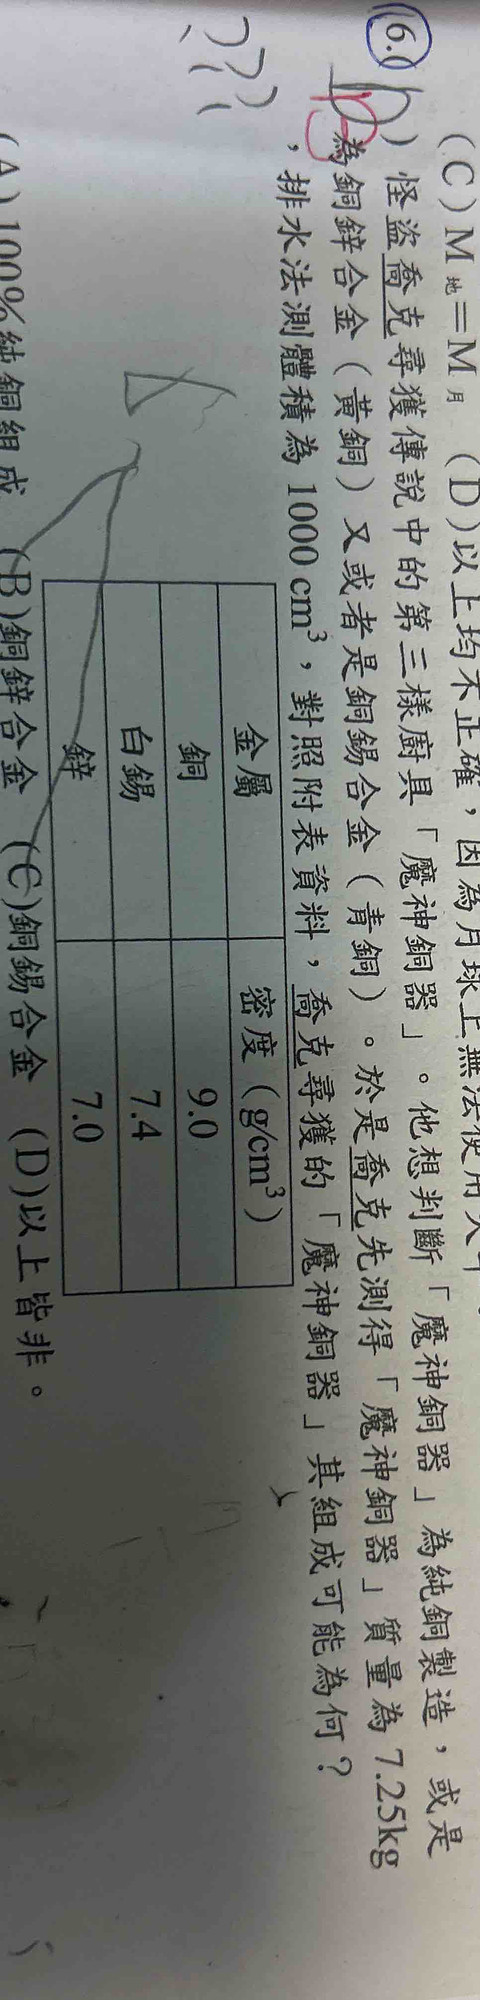 (C)M地=M月 (D)以上均不正確，因為月球上無法使用天平。
16.( )怪盜喬克尋獲傳說中的第三樣廚具「魔神銅器」。他想判斷「魔神銅器」為純銅製造，或是
為銅鋅合金（黃銅）又或者是銅錫合金（青銅）。於是喬克先測得「魔神銅器」質量為 7.25kg
，排水法測體積為 1000 cm³，對照附表資料，喬克尋獲的「魔神銅器」其組成可能為何？
金屬 密度（g/cm³）
銅 9.0
白錫 7.4
鋅 7.0
(A)100%純銅組成 (B)銅鋅合金 (C)銅錫合金 (D)以上皆非。
???